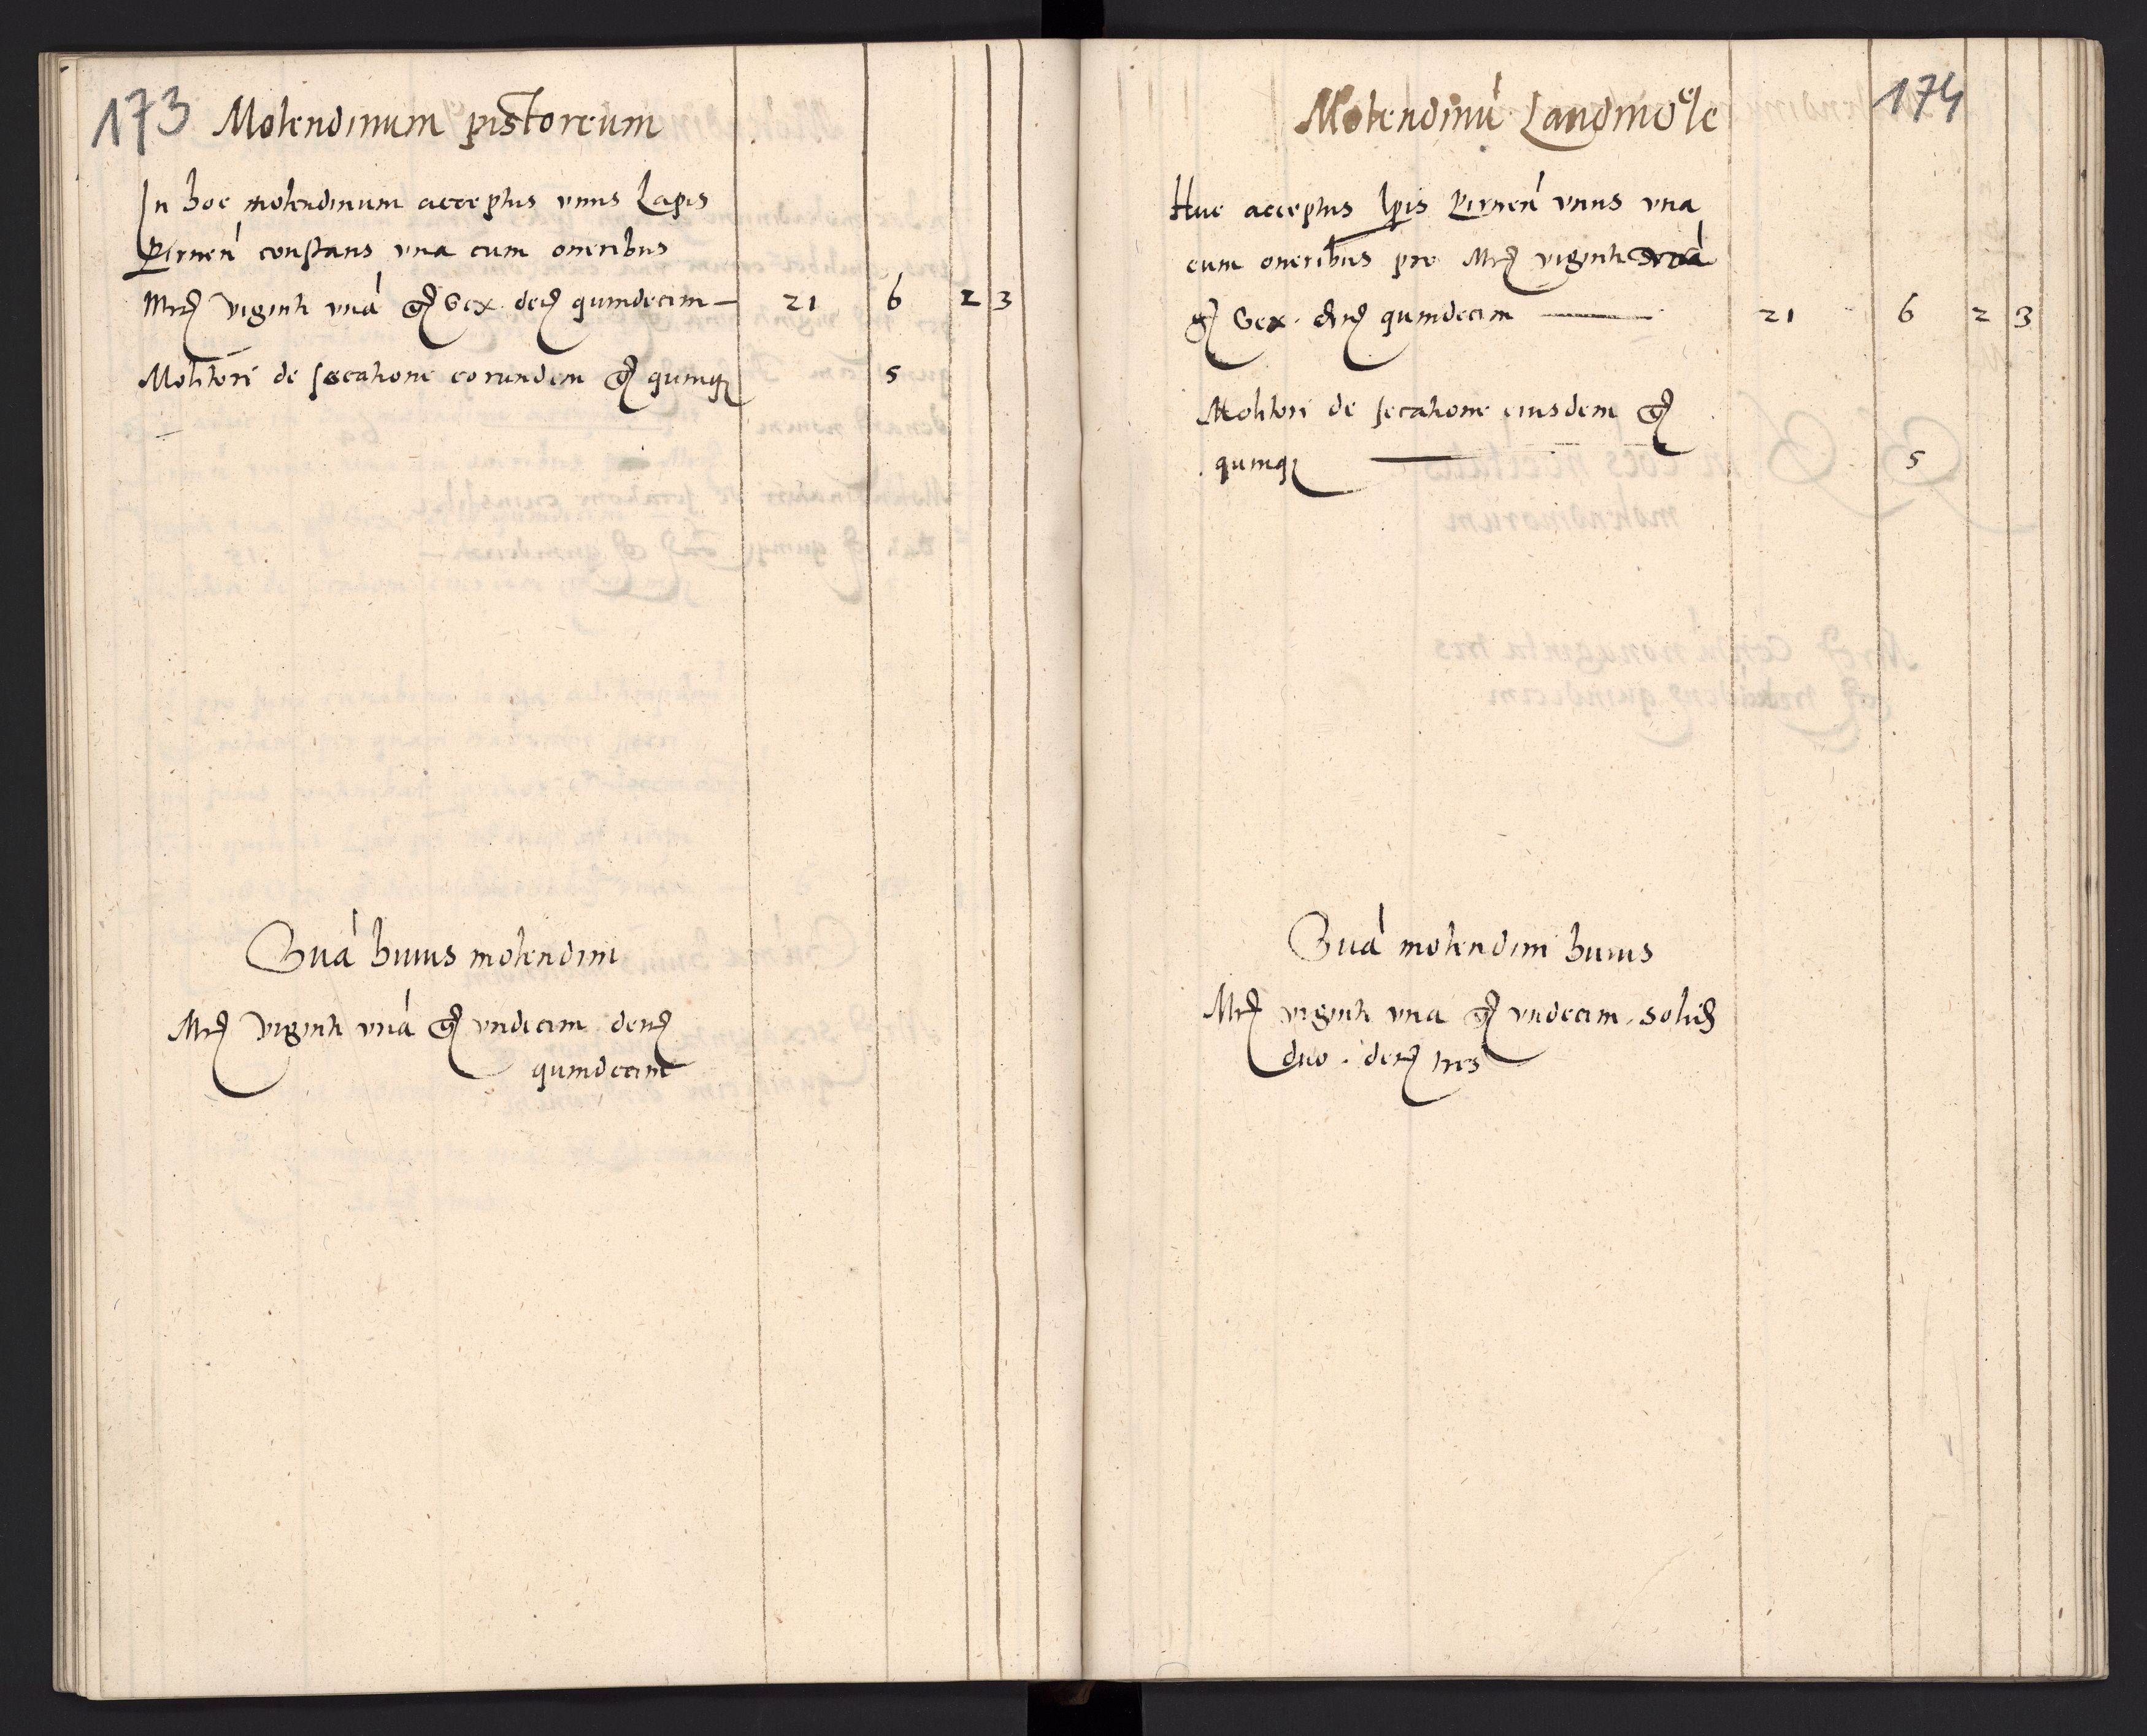 173 Molendinum pistoreum
In hoc molendinum acceptus unus Lapis
Pirnen constans una cum oneribus
Mrc viginti una gr Sex denr quindecim — 21 6 2 3
Molitori de secatione eorundem gr quinque 5
Suma huius molendini
Mrc viginti una gr undecim denr
quindecim
174
Molendinu Landmoele
Huc acceptus lpis Pirnen unus una
cum oneribus pro Mrc viginti una
gr Sex denr quindecim — 21 6 2 3
Molitori de secatione eiusdem gr
quinque — 5
Suma molendini huius
Mrc viginti una gr undecim solid
duo denr tres